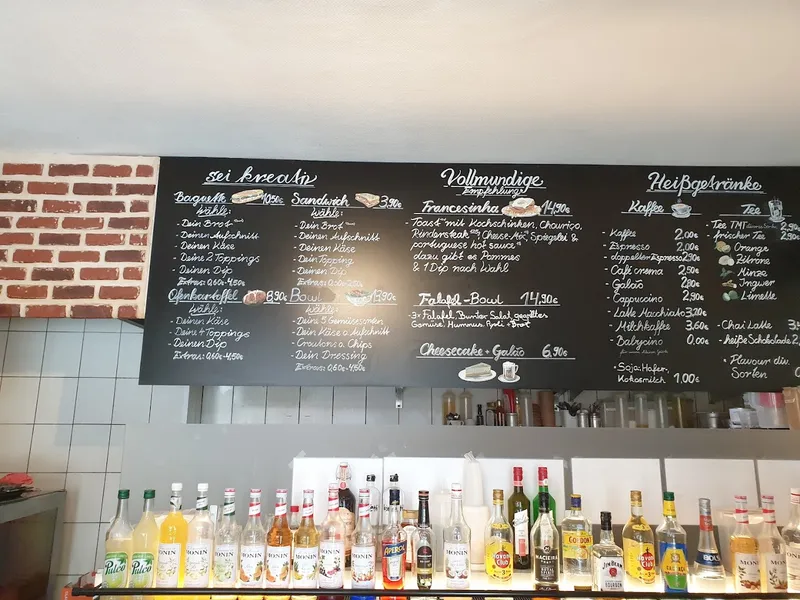 sei kreativ
Baguette 10,50€
Wähle:
- Dein Brot
- Deinen Aufschnitt
- Deinen Käse
- Deine 2 Toppings
- Deinen Dip
Extras: 0,60€-4,50€
Ofenkartoffel 8,90€
Wähle:
- Deinen Käse
- Deine 4 Toppings
- Deinen Dip
Extras: 0,60€-4,50€
Sandwich 3,90€
Wähle:
- Dein Brot
- Deinen Aufschnitt
- Deinen Käse
- Dein Topping
- Deinen Dip
Extras: 0,60€-2,00€
Bowl 8,90€
Wähle:
- Deine 5 Gemüsesorten
- Dein Käse o. Aufschnitt
- Croutons o. Chips
- Dein Dressing
Extras: 0,60€-4,50€
Vollmundige
Empfehlung
Francesinha 14,90€
Toast mit Kochschinken, Chouriço,
Rindersteak, Cheese-Mix, Spiegelei &
portuguese hot sauce
dazu gibt es Pommes
& 1 Dip nach Wahl
Falafel-Bowl 14,90€
- 3x Falafel, Bunter Salat, gegrilltes
Gemüse, Hummus, Brot
Cheesecake + Galão 6,90€
Heißgetränke
Kaffee
- Kaffee 2,00€
- Espresso 2,00€
- doppelten Espresso 2,90€
- Café crema 2,50€
- Galão 2,90€
- Cappuccino 2,90€
- Latte Macchiato 3,20€
- Milchkaffee 3,60€
- Babycino 0,00€
- Soja, Hafer,
Kokosmilch 1,00€
Tee
- Tee TMT 2,50€
- frischer Tee 2,90€
Orange
Zitrone
Minze
Ingwer
Limette
- Chai Latte
- heiße Schokolade
- Flavour div.
Sorten
Pulco
Pulco
MONIN
MONIN
MONIN
MONIN
MONIN
MONIN
MONIN
MONIN
APEROL
MONIN
Havana
Club
GORDON'S
JIM BEAM
BOURBON
Havana
Club
BOLS
MONIN